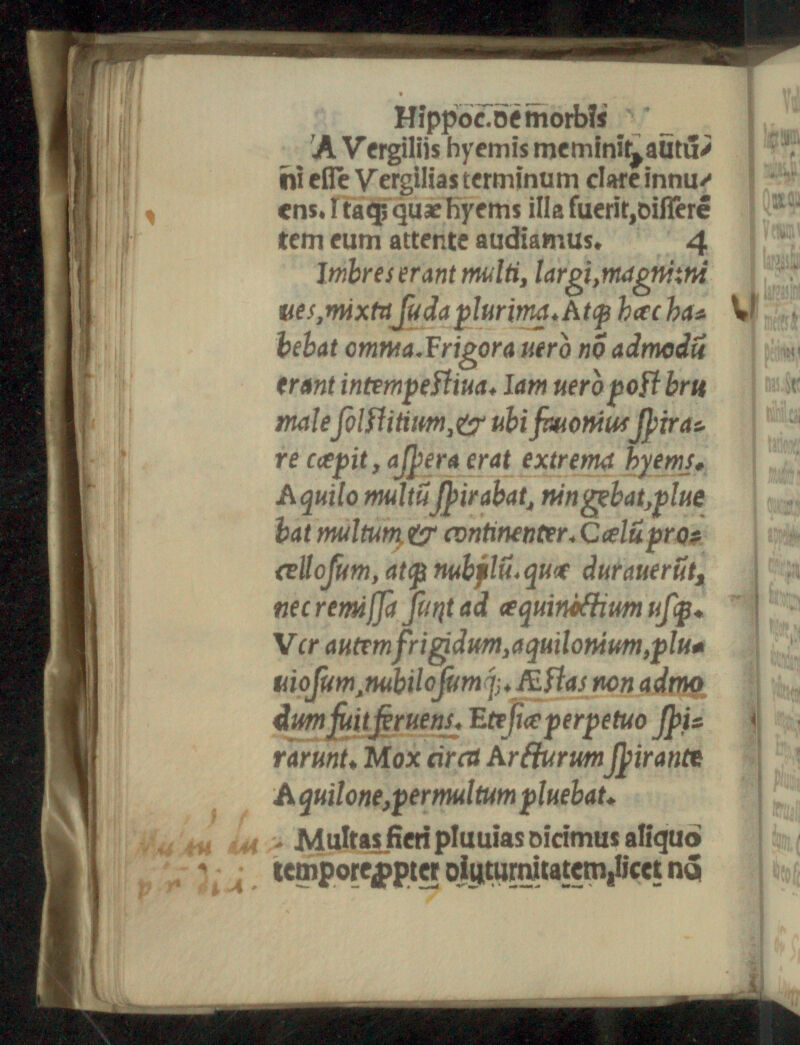 Hippoc. de morbis
A Vergiliis hyemis meminit, autū⸗
ni esse Vergilias terminum clare innu⸗
ens. Itaq; quæ hyems illa fuerit, differē
tem eum attente audiamus. 4
Imbres erant multi, largi, magni: ni
ues, mixta suda plurima. Atq; hæc ha⸗
bebat omnia. Frigora uero nō admodū
erant intempestiua. Iam uero post bru
male solstitium, & ubi fauonius spira⸗
re cœpit, aspera erat extrema hyems.
Aquilo multū spirabat, ningebat, plue
bat multum, & continenter. Cælū pro⸗
cellosum, atq; nubilū. quæ durauerūt,
nec remissa sunt ad æquinoctium usq;.
Ver autem frigidum, aquilonium, plu⸗
uiosum, nubilosumq;. Æstas non admo
dum fuit feruens. Etesiæ perpetuo spi⸗
rarunt. Mox circa Arcturum spirante
Aquilone, permultum pluebat.
Multas fieri pluuias dicimus aliquo
tempore ꝓpter diuturnitatem, licet nō